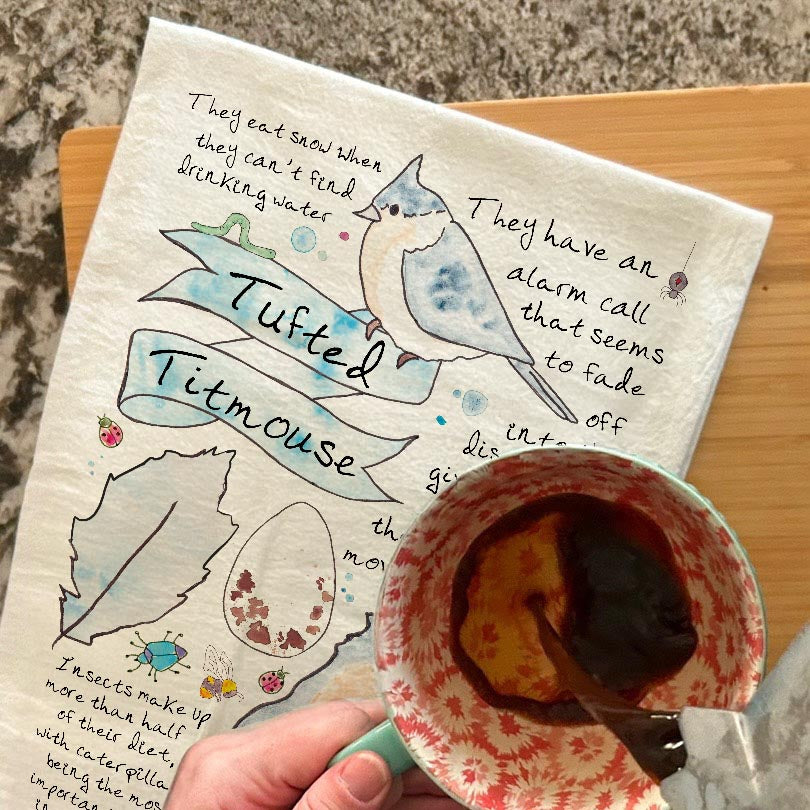 They eat snow when
they can't find
drinking water
They have an
alarm call
that seems
to fade
off
Tufted
Titmouse
Insects make up
more than half
of their diet,
with
being the